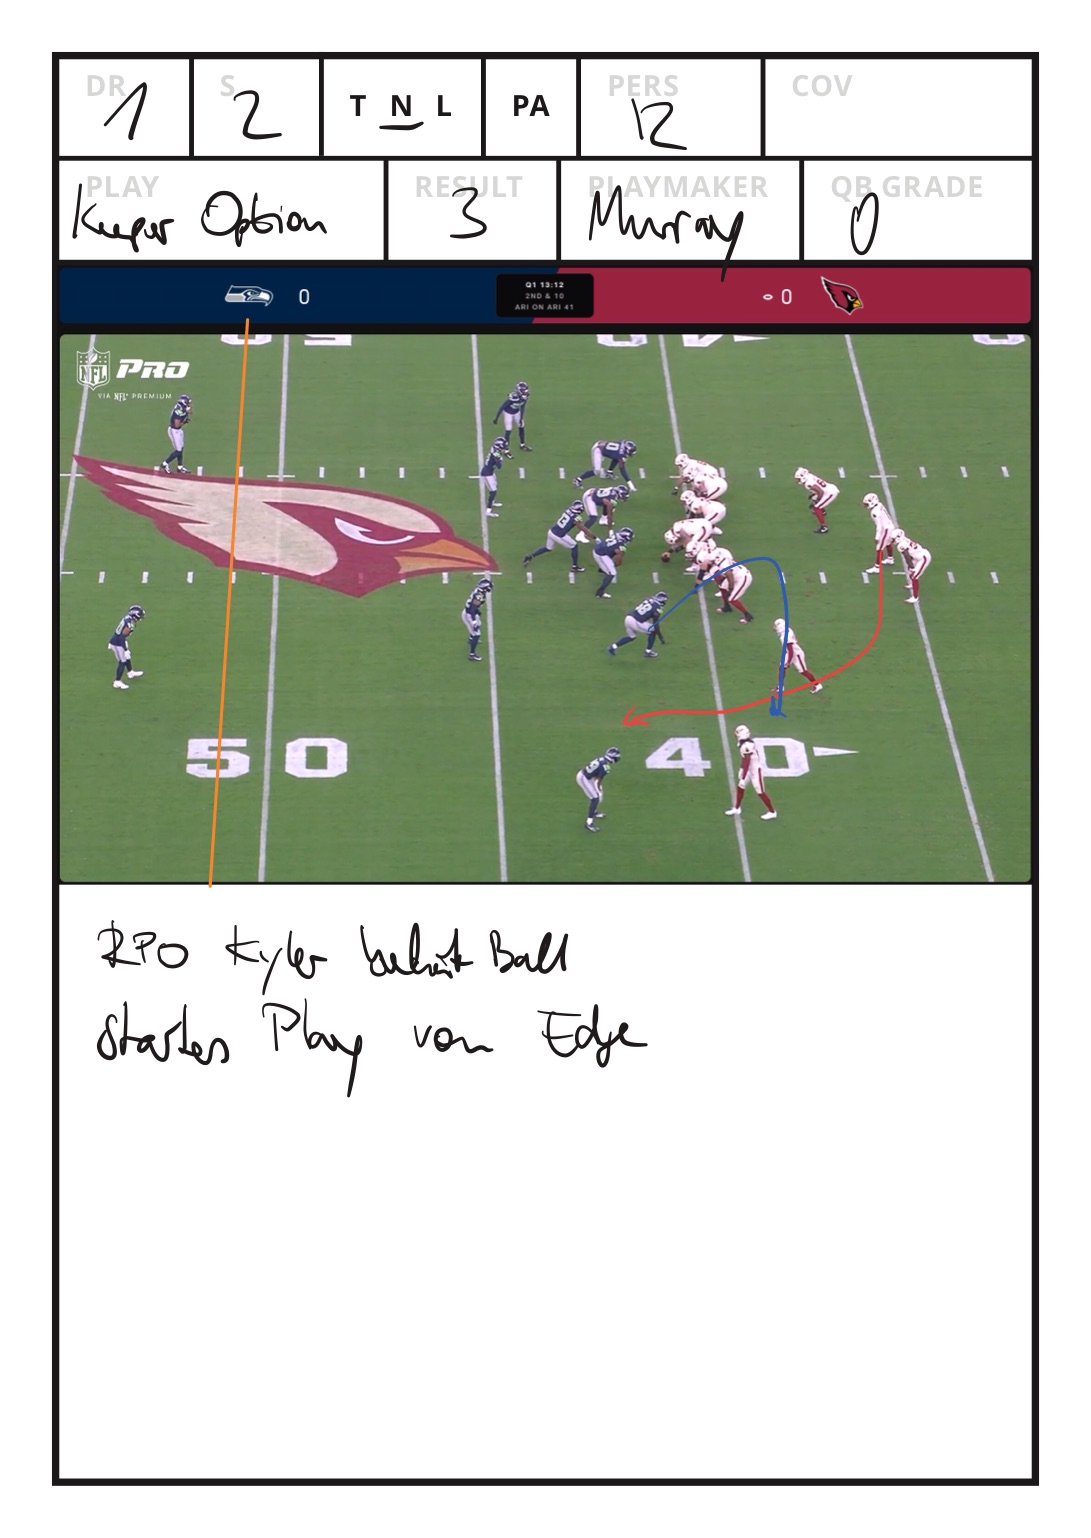 DR 1 S 2 T N L PA PERS 12 COV
PLAY Keeper Option RESULT 3 PLAYMAKER Murray QB GRADE 0
0 Q1 13:12 0
2ND & 10
ARI ON ARI 41
NFL PRO
VIA NFL+ PREMIUM
5 0 4 0
RPO Kyler behält Ball
starkes Play vom Edge